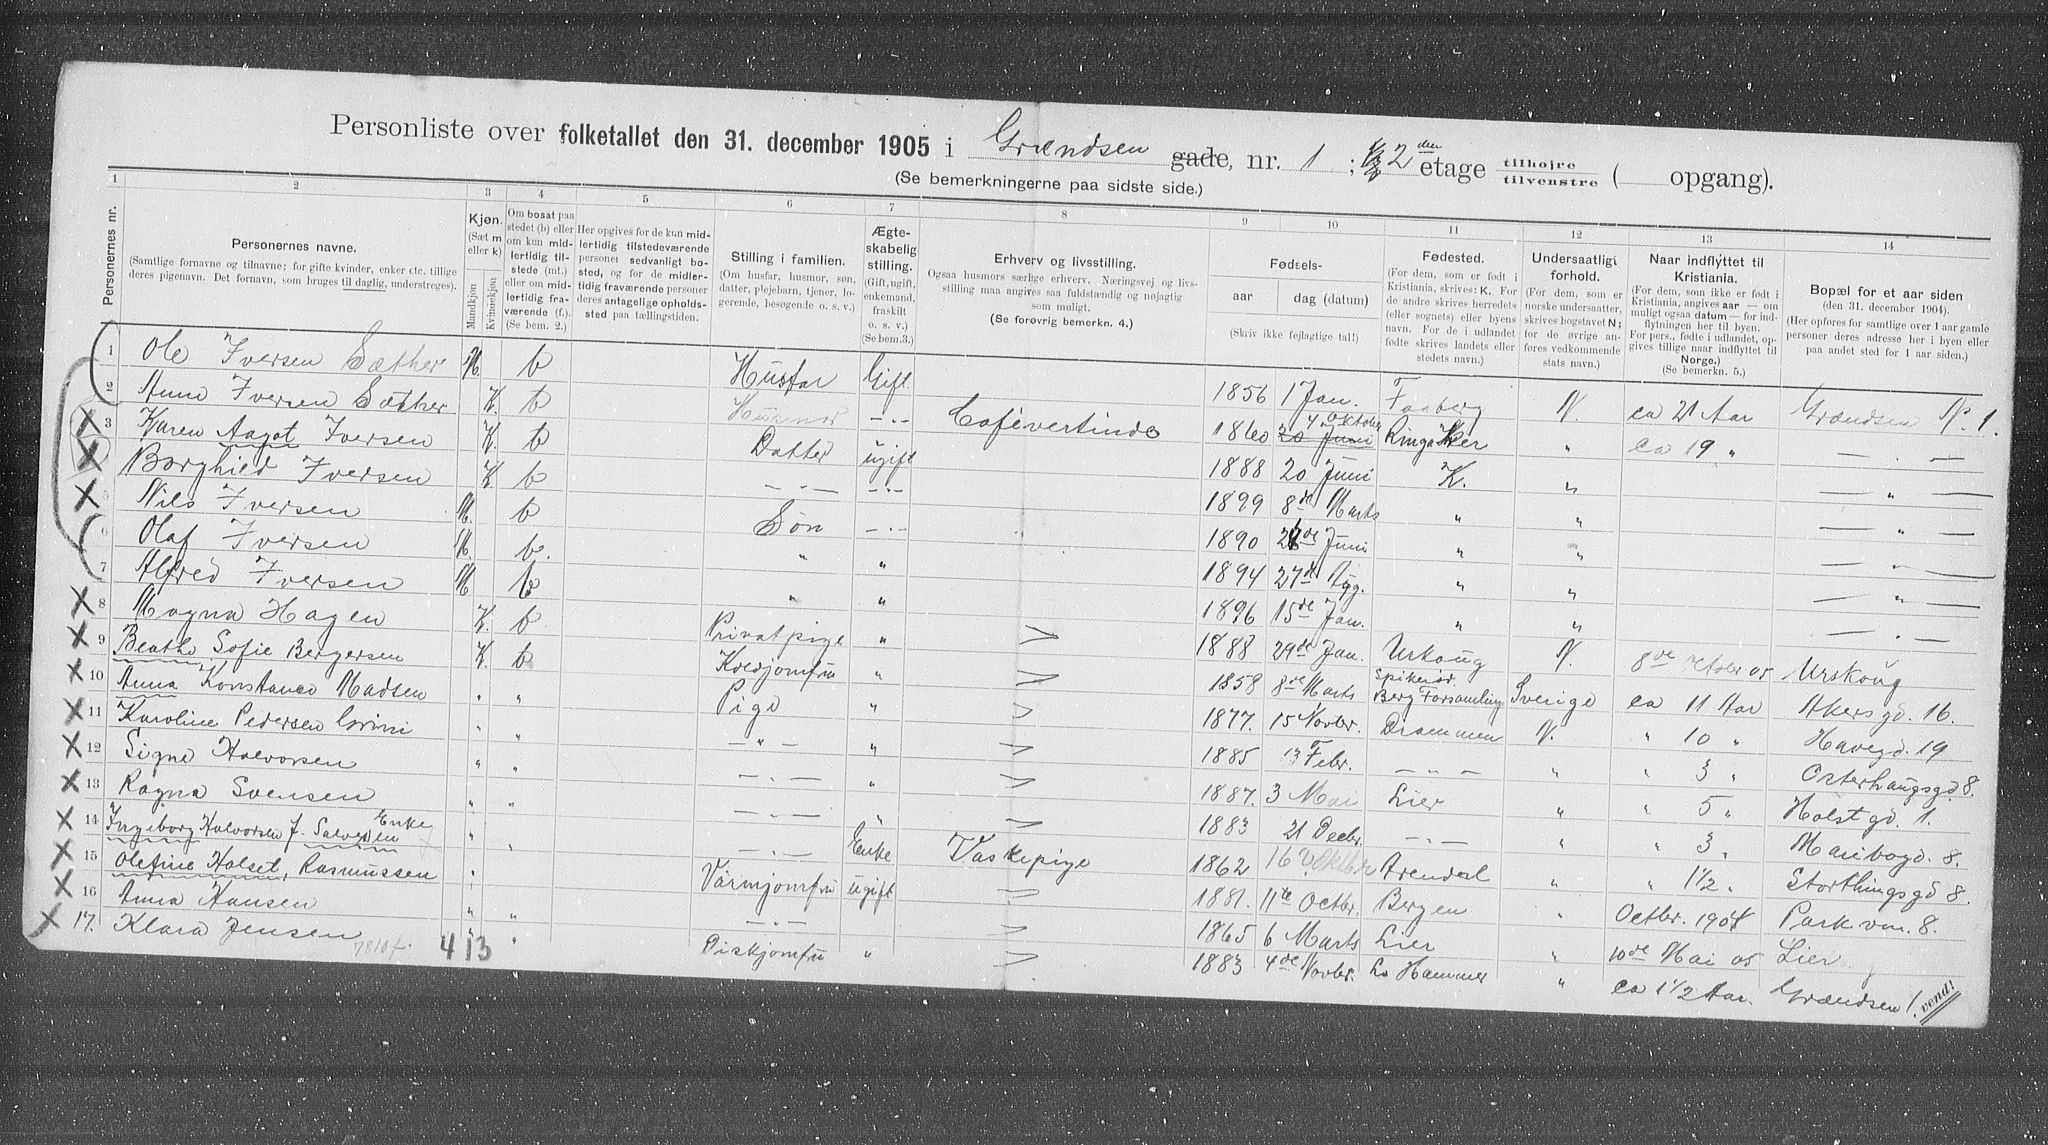 Personliste over folketallet den 31. december 1905 i Grændsen gade, nr. 1 ; 2 den etage tilhøjre tilvenstre ( opgang).
(Se bemerkningerne paa sidste side.)
1 2 3 4 5 6 7 8 9 10 11 12 13 14
Personernes nr.
Personernes navne.
(Samtlige fornavne og tilnavne; for gifte kvinder, enker etc. tillige
deres pigenavn. Det fornavn, som bruges til daglig, understreges).
Kjøn.
(Sæt m
eller k)
Mandkjøn
Kvindekjøn
Om bosat paa
stedet (b) eller
om kun mid-
lertidig til-
stede (mt.)
eller om mid-
lertidig fra-
værende (f.).
(Se bem. 2.)
Her opgives for de kun mid-
lertidig tilstedeværende
personer sedvanligt bo-
sted, og for de midler-
tidig fraværende personer
deres antagelige opholds-
sted paa tællingstiden.
Stilling i familien.
(Om husfar, husmor, søn,
datter, plejebarn, tjener, lo-
gerende, besøgende o. s. v.)
Ægte-
skabelig
stilling.
(Gift, ugift,
enkemand,
fraskilt
o. s. v.)
(Se bem.3.)
Erhverv og livsstilling.
Ogsaa husmors særlige erhverv. Næringsvej og livs-
stilling maa angives saa fuldstændig og nøjagtig
som muligt.
(Se forøvrig bemerkn. 4.)
Fødsels-
aar dag (datum)
(Skriv ikke fejlagtige tal!)
Fødested.
(For dem, som er født i
Kristiania, skrives: K. For
de andre skrives herredets
(eller sognets) eller byens
navn. For de i udlandet
fødte skrives landets eller
stedets navn.)
Undersaatligt
forhold.
(For dem, som er
norske undersaatter,
skrives bogstavet N;
for de øvrige an-
føres vedkommende
stats navn).
Naar indflyttet til
Kristiania.
(For dem, som ikke er født i
Kristiania, angives aar — om
muligt ogsaa datum — for ind-
flytningen her til byen.
For pers., fødte i udlandet, op-
gives tillige naar indflyttet til
Norge.)
(Se bemerkn. 5.)
Bopæl for et aar siden
(den 31. december 1904).
(Her opføres for samtlige over 1 aar gamle
personer deres adresse her i byen eller
paa andet sted for 1 aar siden.)
1 Ole Iversen Sæther M. b Husfar Gift 1856 1 Jan. Faaberg N ca 21 Aar Grændsen No. 1.
2 Anna Iversen Sæther K. b Husmor -"- Cafévertinde 1860 20 Juni 4 Oktober Ringsaker " ca 19 " — " —
3 Karen Aagot Iversen K. b Datter ugift 1888 20 Juni K. " — " —
Borghild Iversen K b -"- -"- 1899 8de Marts " " — " —
5 Nils Iversen M. b Søn -"- 1890 de Juni " " — " —
6 Olaf Iversen M. b. " " 1894 27de Aug. " " — " —
7 Alfred Iversen M b " " 1896 15de Jan. " " — " —
8 Magna Hagen K. b. Privatpige " 1888 29de Jan. Urskoug N. 8de Octbr 05 Urskoug
9 Beathe Sofie Bergersen K. b Koldjomfru " 1858 8de Marts Berg Forsamling Sverige ca 11 Aar Akersgd. 16.
10 Anna Konstance Madsen " " Pige " 1877. 15 Novbr. Drammen N. " 10 " Havegd. 19
11 Karoline Pedersen Grini " " -"- " 1885 13 Febr. -"- " " 3 " Osterhaugsgd. 8.
12 Signe Halvorsen " " -"- " 1887. 3 Mai Lier " " 5 " Holstgd. 1.
13 Ragna Svensen " " -"- " 1883 21 Decbr. -"- " " 3 " Maribogd. 8.
14 Ingeborg Halvorsen f. Salvesen Enke " " -"- Enke Vaskepige 1862 16 Oktober Arendal " " 1½ " Storthingsgd 8.
15 Olefine Holset, Rasmussen " Varmjomfru ugift 1881. 11te Octbr. Bergen " Octbr. 1904 Parkvn. 8.
16 Anna Hansen " " -"- 1865 6 Marts Lier " 10de Mai 05 Lier
17. Klara Jensen " " Diskjomfru " 1883 4de Novbr. L. Hammer " ca 1½ Aar. Grændsen 1.
4 13
vend!